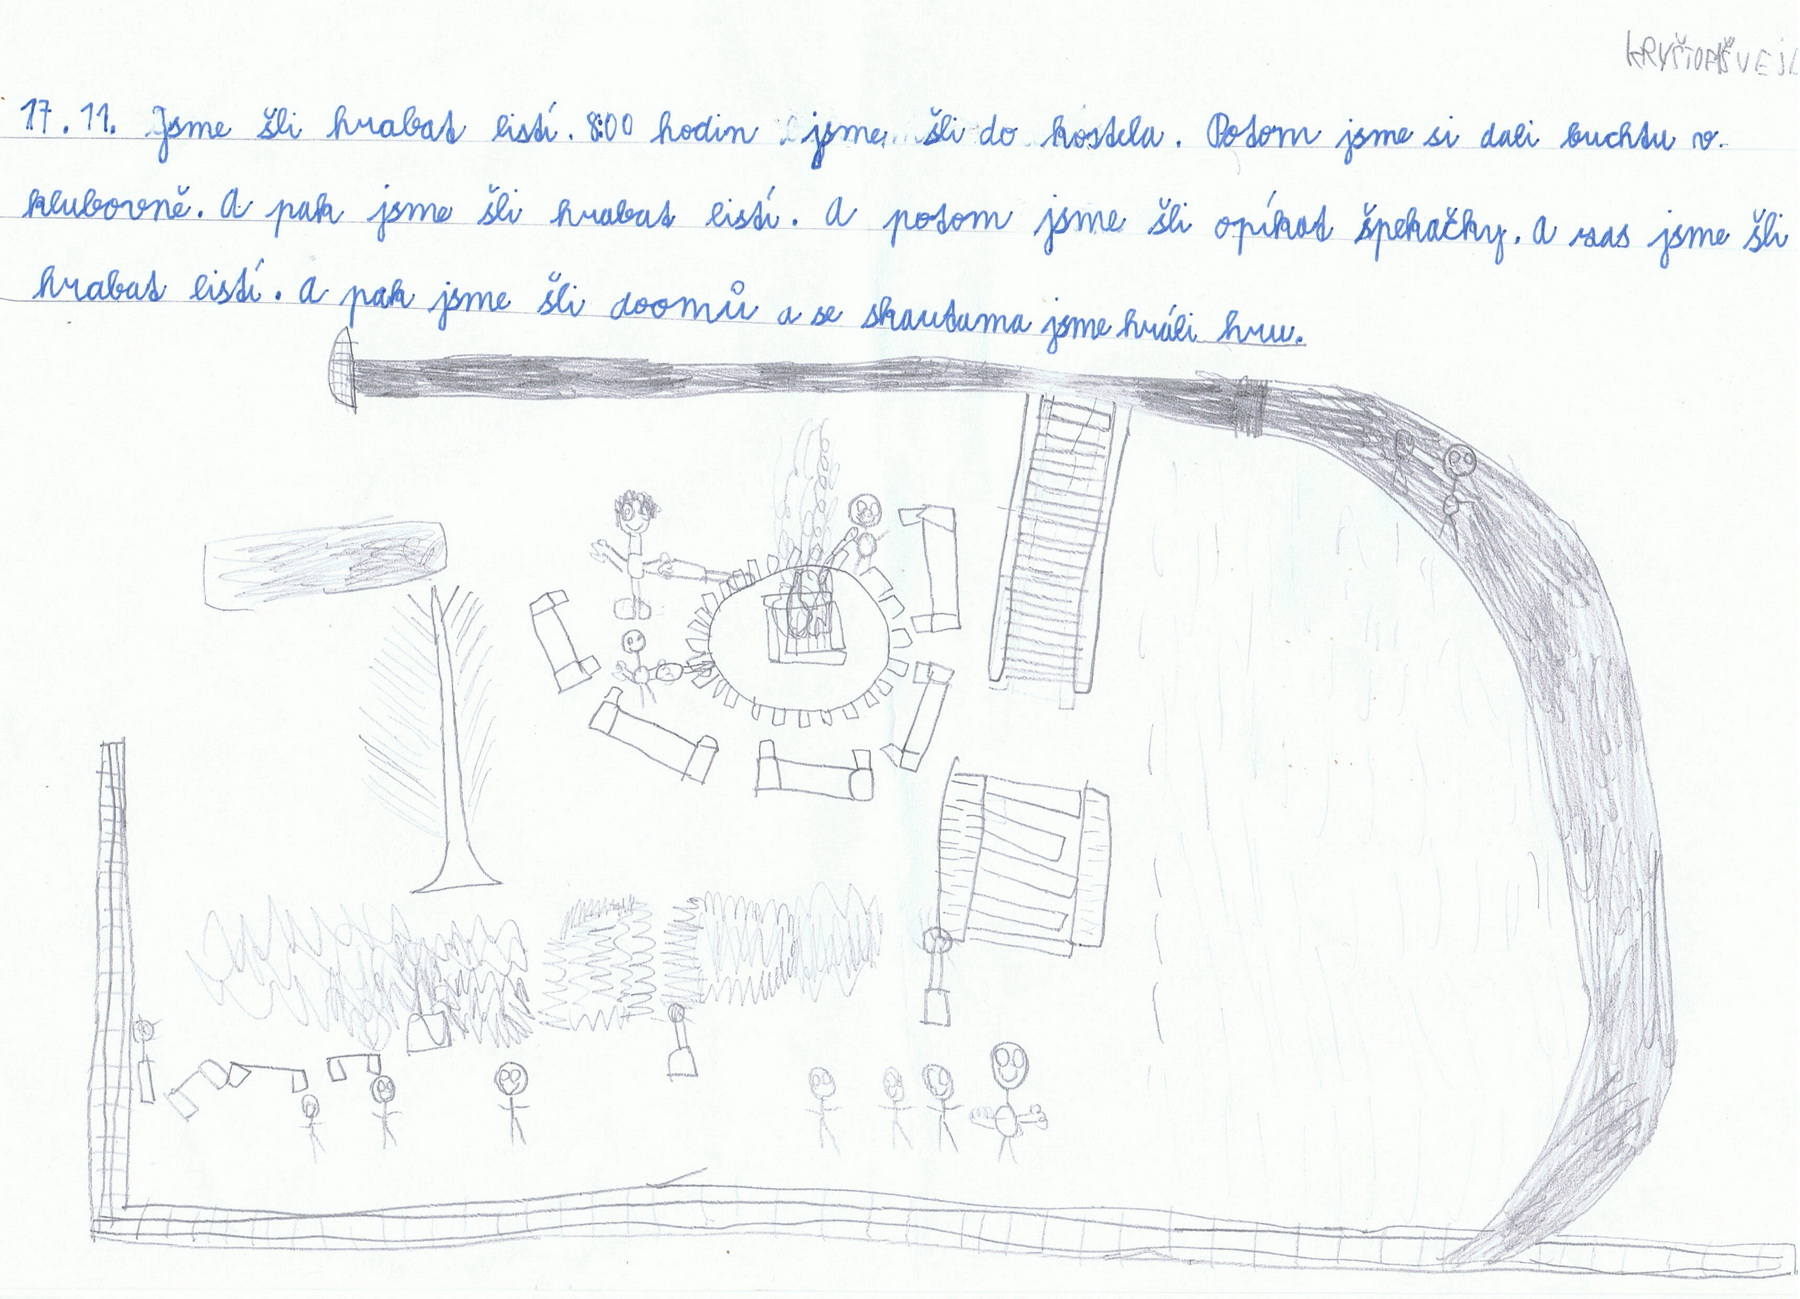 KRYŠTOF ŠVEJL
17. 11. Jsme šli hrabat listí. 8:00 hodin jsme šli do kostela. Potom jsme si dali buchtu v.
klubovně. A pak jsme šli hrabat listí. A potom jsme šli opíkat špekačky. A zas jsme šli
hrabat listí. A pak jsme šli doomů a se skautama jsme hráli hru.